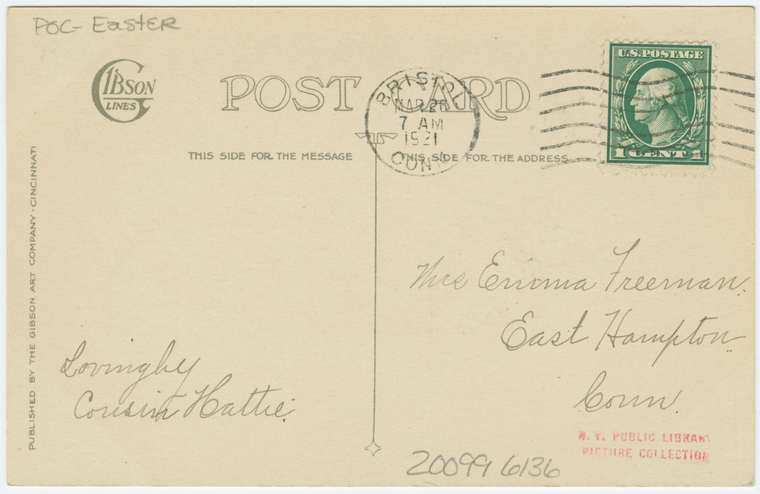 POC- EASTER
GIBSON
LINES
POST CARD
BRISTOL
MAR 26
7 AM
1921
CONN.
U.S. POSTAGE
1 CENT 1
THIS SIDE FOR THE MESSAGE
THIS SIDE FOR THE ADDRESS
PUBLISHED BY THE GIBSON ART COMPANY · CINCINNATI
Mrs Emma Freeman.
East Hampton
Conn.
Lovingly
Cousin Hattie.
N. Y. PUBLIC LIBRARY
PICTURE COLLECTION
20099 6136